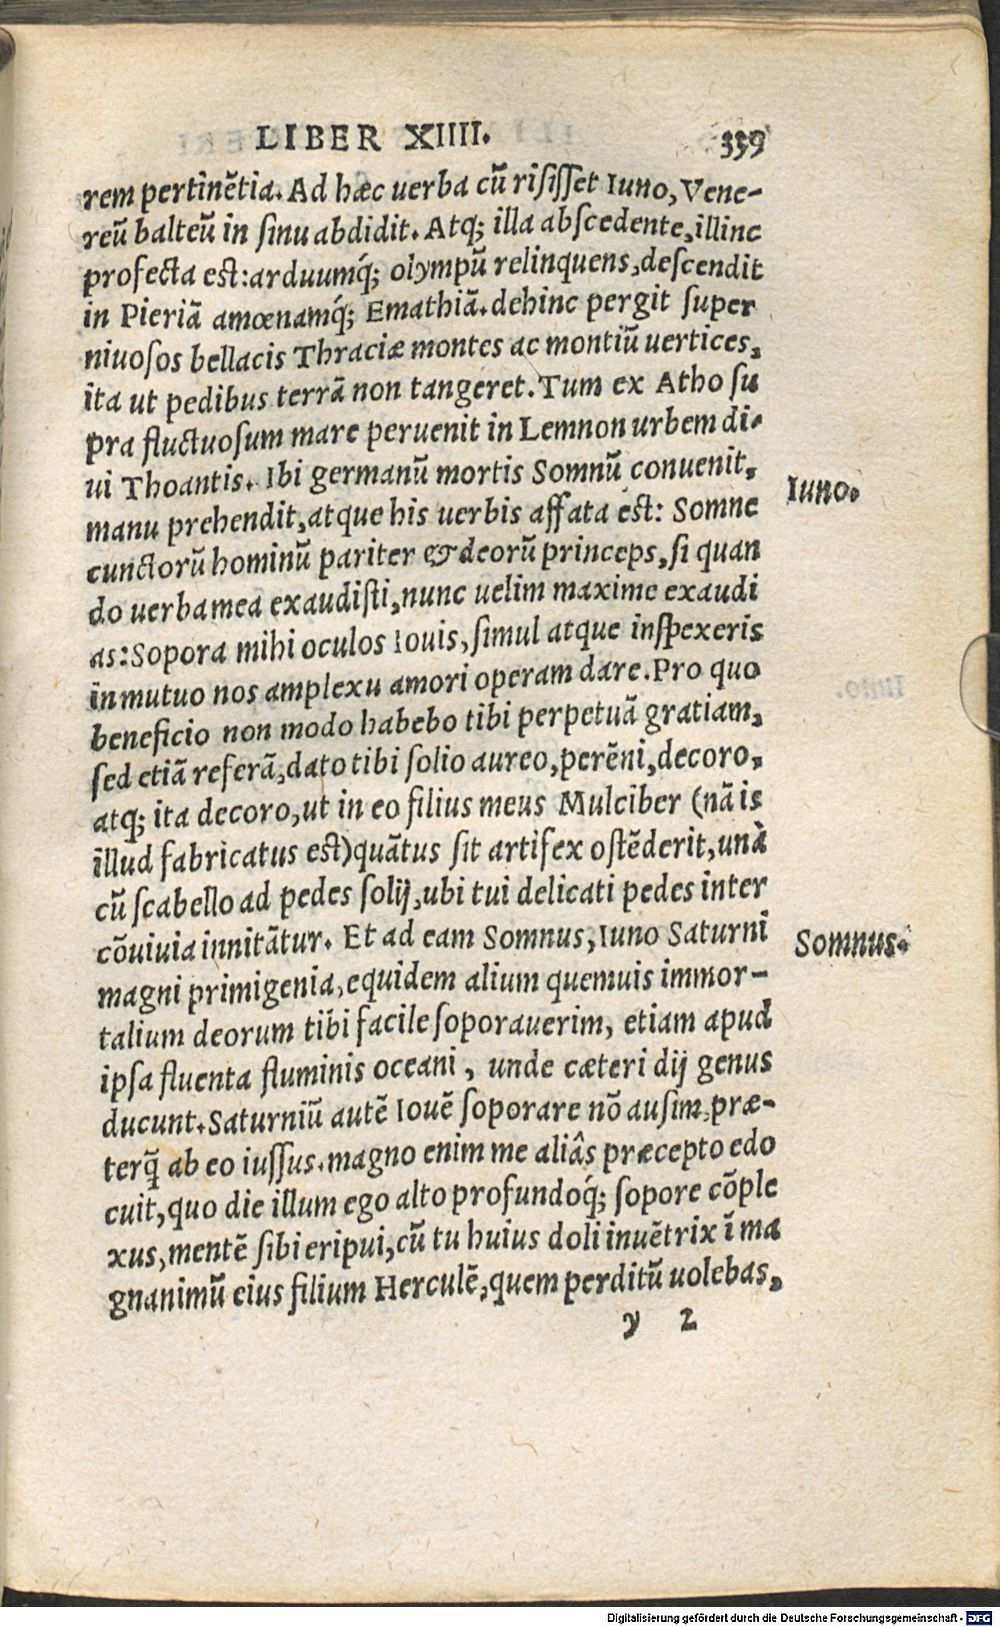 LIBER XIIII. 339
rem pertinẽtia. Ad hæc uerba cũ risisset Iuno, Vene-
reũ balteũ in sinu abdidit. Atq; illa abscedente, illinc
profecta est: arduumq́; olympũ relinquens, descendit
in Pieriã amœnamq́; Emathiã. dehinc pergit super
niuosos bellacis Thraciæ montes ac montiũ uertices,
ita ut pedibus terrã non tangeret. Tum ex Atho su
pra fluctuosum mare peruenit in Lemnon urbem di-
ui Thoantis. Ibi germanũ mortis Somnũ conuenit,
Iuno.
manu prehendit, atque his uerbis affata est: Somne
cunctorũ hominũ pariter & deorũ princeps, si quan
do uerba mea exaudisti, nunc uelim maxime exaudi
as: Sopora mihi oculos Iouis, simul atque inspexeris
in mutuo nos amplexu amori operam dare. Pro quo
beneficio non modo habebo tibi perpetuã gratiam,
sed etiã referã, dato tibi solio aureo, perẽni, decoro,
atq; ita decoro, ut in eo filius meus Mulciber (nã is
illud fabricatus est) quãtus sit artifex ostẽderit, unà
cũ scabello ad pedes solij, ubi tui delicati pedes inter
cõuiuia innitãtur. Et ad eam Somnus, Iuno Saturni
Somnus.
magni primigenia, equidem alium quemuis immor-
talium deorum tibi facile soporauerim, etiam apud
ipsa fluenta fluminis oceani, unde cæteri dij genus
ducunt. Saturniũ autẽ Iouẽ soporare nõ ausim, præ-
terq̃ ab eo iussus. magno enim me aliâs præcepto edo
cuit, quo die illum ego alto profundoq́; sopore cõple
xus, mentẽ sibi eripui, cũ tu huius doli inuẽtrix ĩ ma
gnanimũ eius filium Herculẽ, quem perditũ uolebas,
y 2
Digitalisierung gefördert durch die Deutsche Forschungsgemeinschaft - DFG